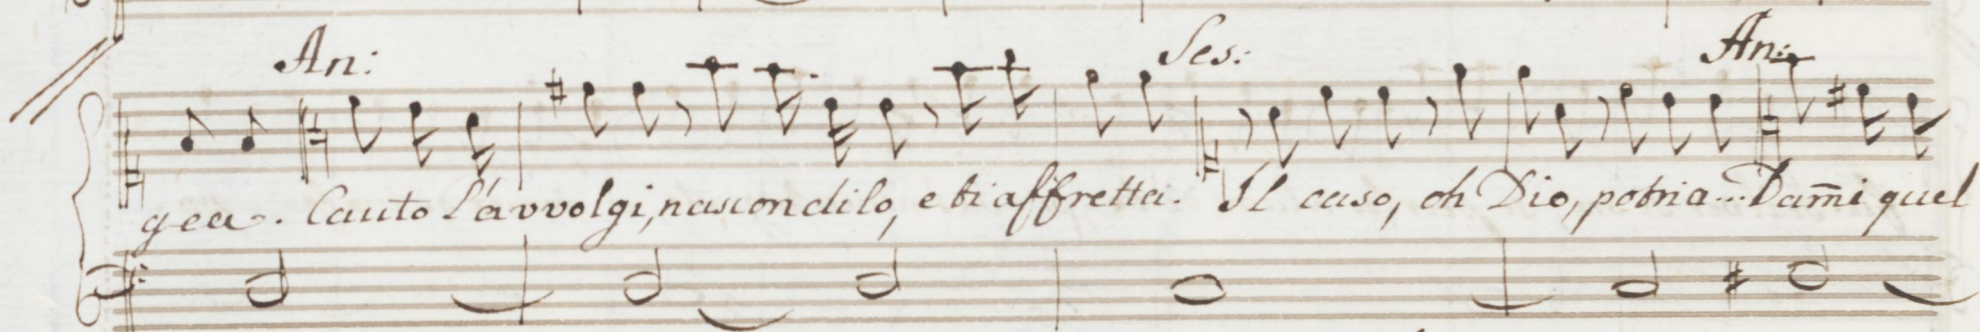 An: Ses: An:
gea. Cauto l'avvolgi, nascondilo, e ti affretta. Il caso, oh Dio, potria... Dam̄i quel